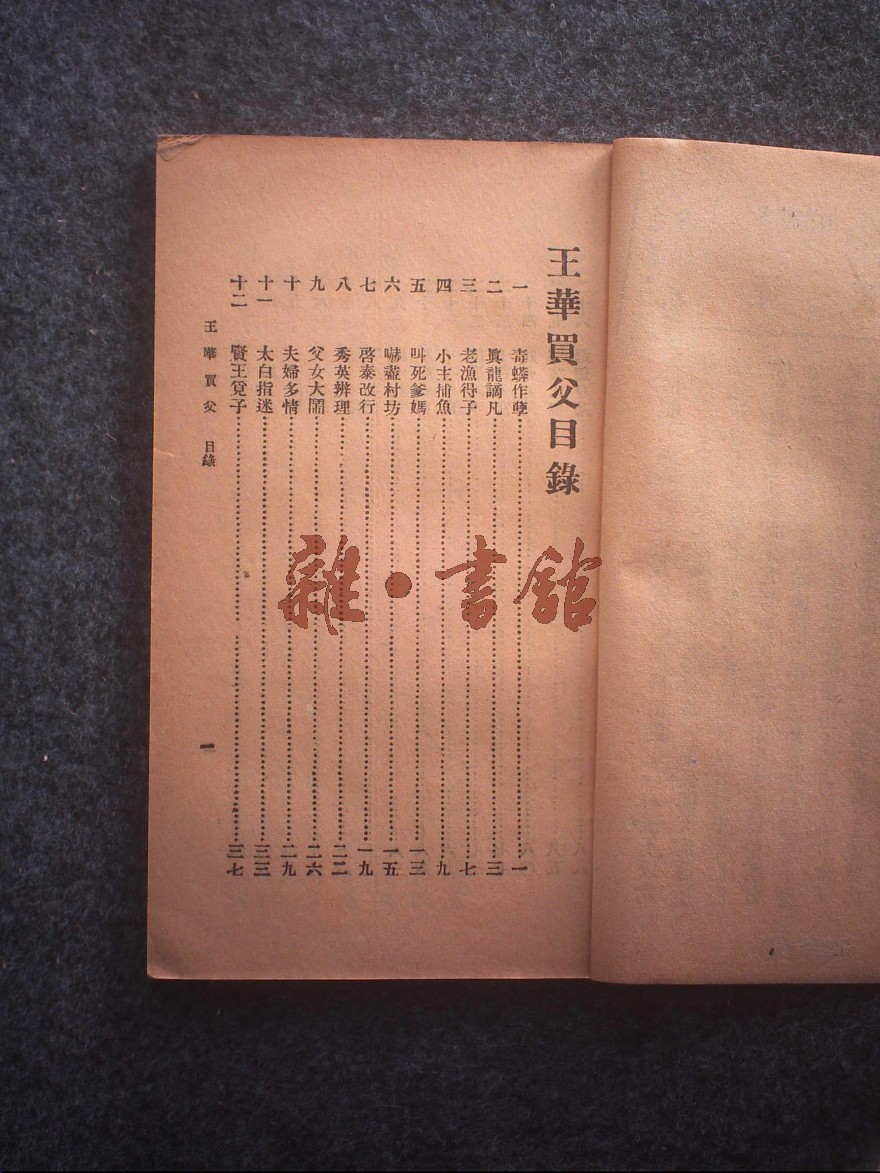 王華買父目錄
一 毒蟒作孽……一
二 眞龍謫凡……三
三 老漁得子……七
四 小主捕魚……九
五 叫死爹媽……一三
六 嚇盡村坊……一五
七 啓泰改行……一九
八 秀英辨理……二二
九 父女大鬧……二六
十 夫婦多情……二九
十一 太白指迷……三三
十二 賢王覓子……三七
王華買父 目錄
一
雜·書舘